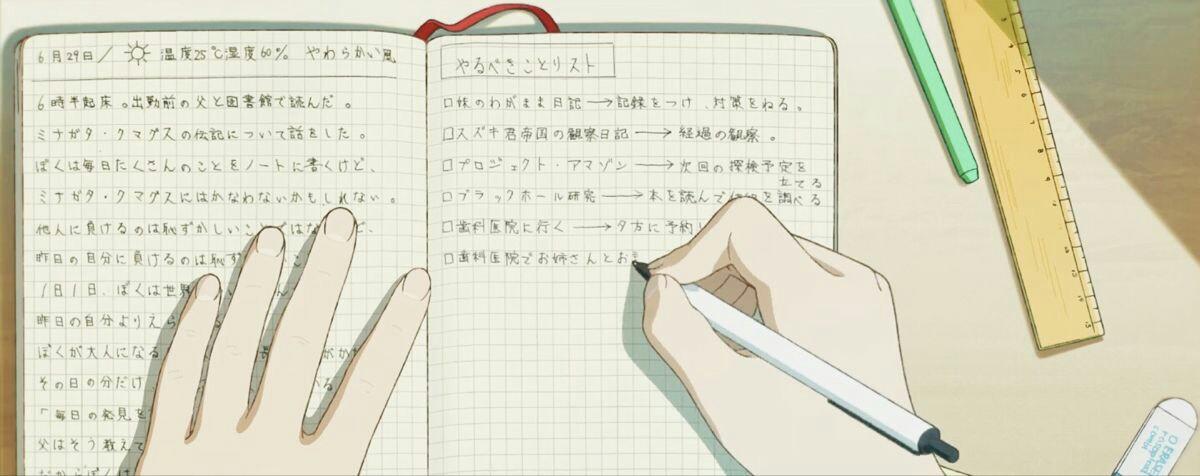 6月29日/ 温度25℃湿度60% やわらかい風
6時半起床。出勤前の父と図書館で読んだ。
ミナガタ・クマグスの伝記について話をした。
ぼくは毎日たくさんのことをノートに書くけど、
ミナガタ・クマグスにはかなわないかもしれない。
他人に負けるのは恥ずかしいこ
昨日の自分に負けるのは恥ず
1日1日、ぼくは世界
昨日の自分よりえら
ぼくが大人になる
その日の分だけ
「毎日の発見を
父はそう教えて
だからぼくは
やるべきことリスト
□妹のわがまま日記→記録をつけ、対策をねる。
□スズキ君帝国の観察日記→経過の観察。
□プロジェクト・アマゾン→次回の探検予定を
立てる
□ブラックホール研究→本を読んで を調べる
□歯科医院に行く→夕方に予約
□歯科医院でお姉さんとお
ERAS